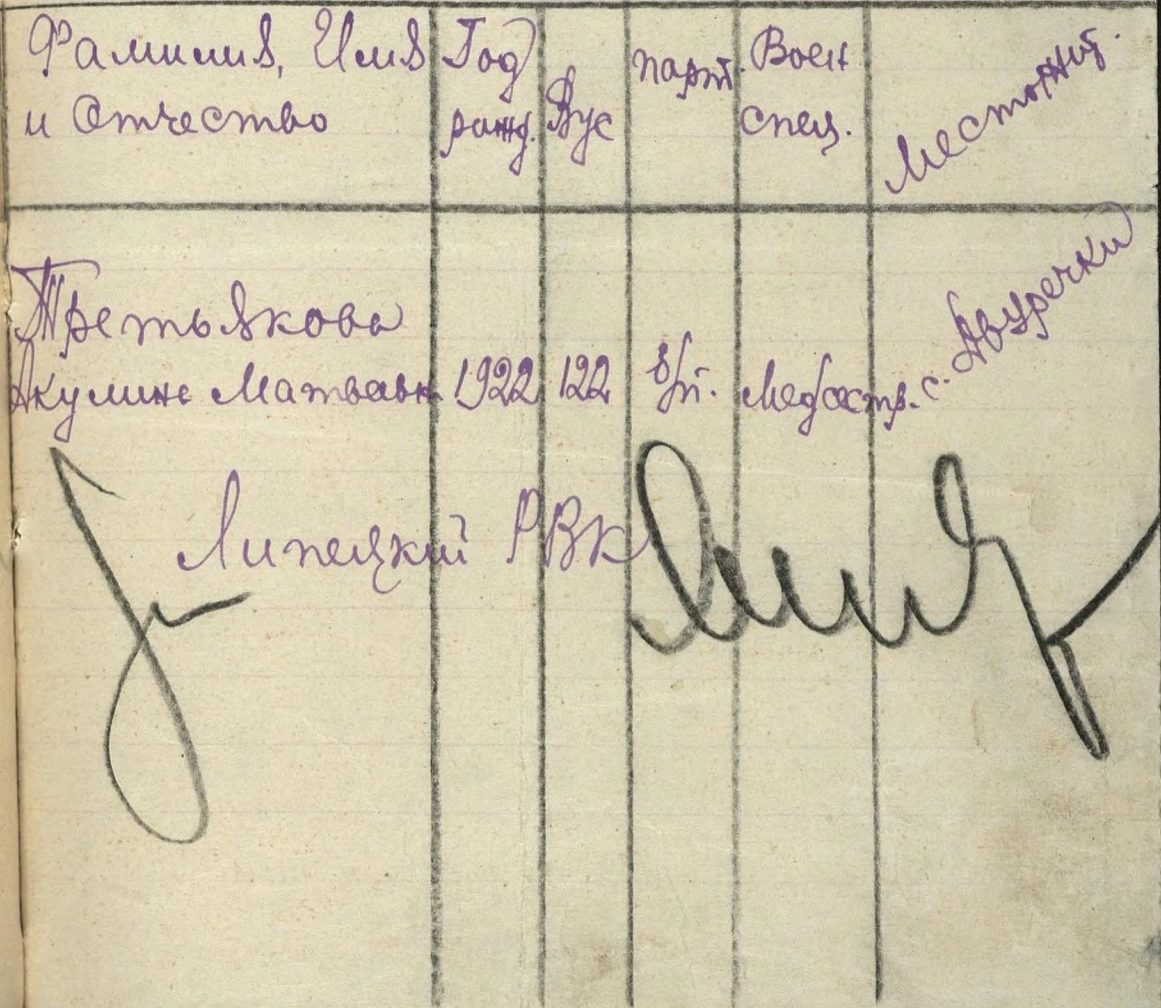 Фамилия, Имя и Отчество
Год рожд.
Вус
парт.
Воен. спец.
Местожит.
Третьякова
Акулина Матвеевн. 1922 122 б/п. Медсестр. с. Двуречки
Липецкий РВК